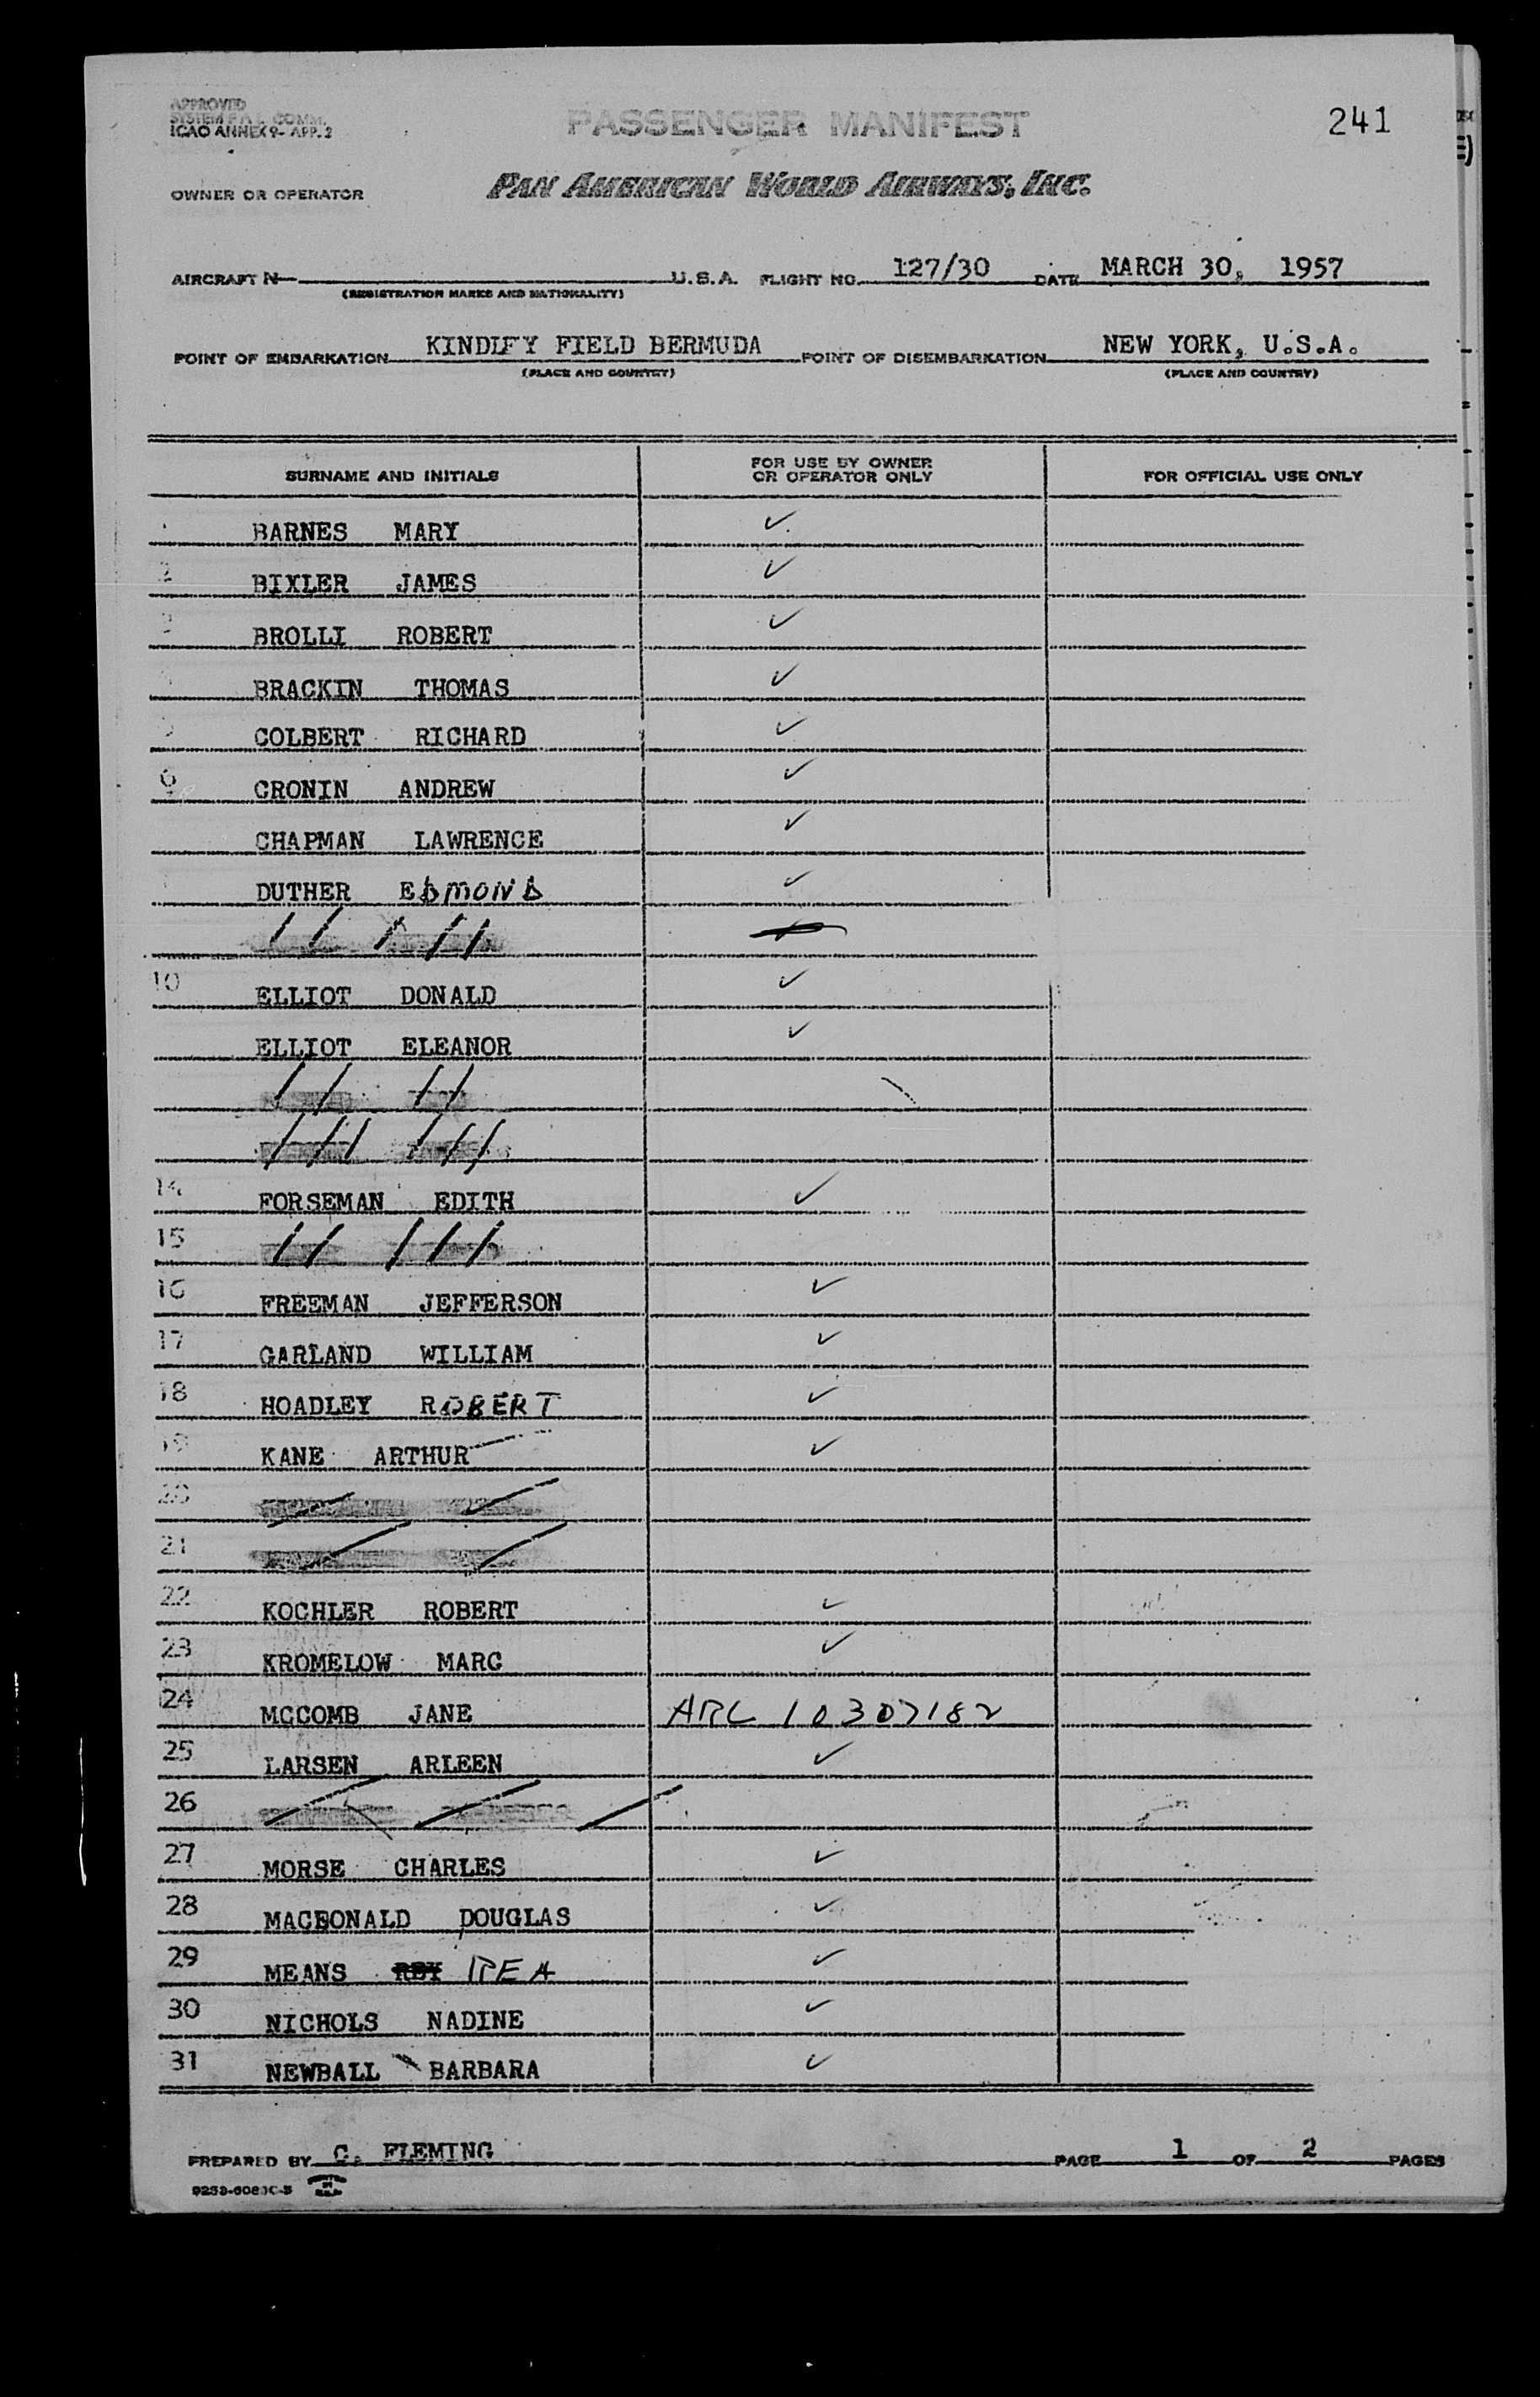 APPROVED
SYSTEM F A L COMM.
ICAO ANNEX 9- APP. 2
PASSENGER MANIFEST
241
OWNER OR OPERATOR PAN AMERICAN WORLD AIRWAYS, INC.
AIRCRAFT N- U.S.A. FLIGHT NO. 127/30 DATE MARCH 30, 1957
(REGISTRATION MARKS AND NATIONALITY)
POINT OF EMBARKATION KINDLEY FIELD BERMUDA POINT OF DISEMBARKATION NEW YORK, U.S.A.
(PLACE AND COUNTRY) (PLACE AND COUNTRY)
SURNAME AND INITIALS FOR USE BY OWNER OR OPERATOR ONLY FOR OFFICIAL USE ONLY
BARNES MARY ✓
2 BIXLER JAMES ✓
BROLLI ROBERT ✓
BRACKIN THOMAS ✓
COLBERT RICHARD ✓
6 CRONIN ANDREW ✓
CHAPMAN LAWRENCE ✓
DUTHER EDMOND ✓
10 ELLIOT DONALD ✓
ELLIOT ELEANOR ✓
14 FORSEMAN EDITH ✓
15
16 FREEMAN JEFFERSON ✓
17 GARLAND WILLIAM ✓
18 HOADLEY ROBERT ✓
19 KANE ARTHUR ✓
20
21
22 KOCHLER ROBERT ✓
23 KROMELOW MARC ✓
24 MCCOMB JANE ARC 10307182
25 LARSEN ARLEEN ✓
26
27 MORSE CHARLES ✓
28 MACDONALD DOUGLAS ✓
29 MEANS REA ✓
30 NICHOLS NADINE ✓
31 NEWBALL BARBARA ✓
PREPARED BY C. FLEMING PAGE 1 OF 2 PAGES